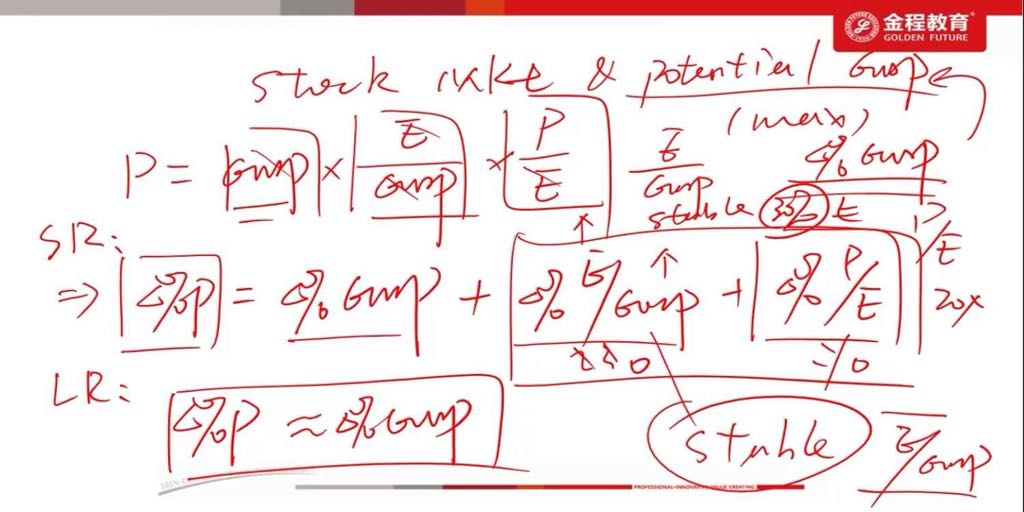 金程教育
GOLDEN FUTURE
stock mkt & potential GDP
(max)
P = GDP × E/GDP × P/E
E/GDP
stable
Δ% GDP
E
P/E
20x
SR:
⇒ Δ%P = Δ% GDP + Δ% E/GDP + Δ% P/E
≈ 0
= 0
LR:
Δ%P ≈ Δ% GDP
stable
E/GDP
PROFESSIONAL·INNOVATIVE·VALUE CREATING